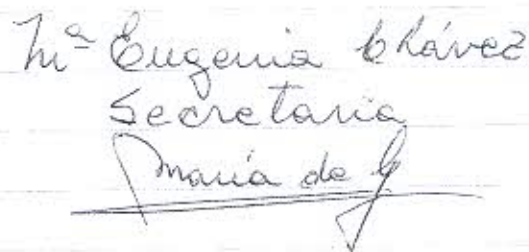 Mª Eugenia Chávez
Secretaria
María de